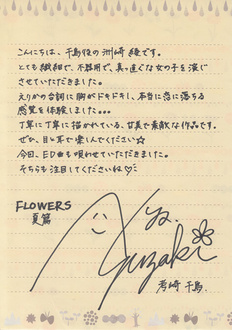 こんにちは、千鳥役の洲崎綾です。
とても繊細で、不器用で、真っ直ぐな女の子を演じ
させていただきました。
えりかの台詞に胸がドキドキし、本当に恋に落ちる
感覚を体験しました...。
丁寧に丁寧に描かれている、甘美で素敵な作品です。
ぜひ、目と耳で楽しんでください☆
今回、ED曲も唄わせていただきました。
そちらも注目してくださいね♡
FLOWERS
夏篇
Aya.
Suzaki
考崎 千鳥